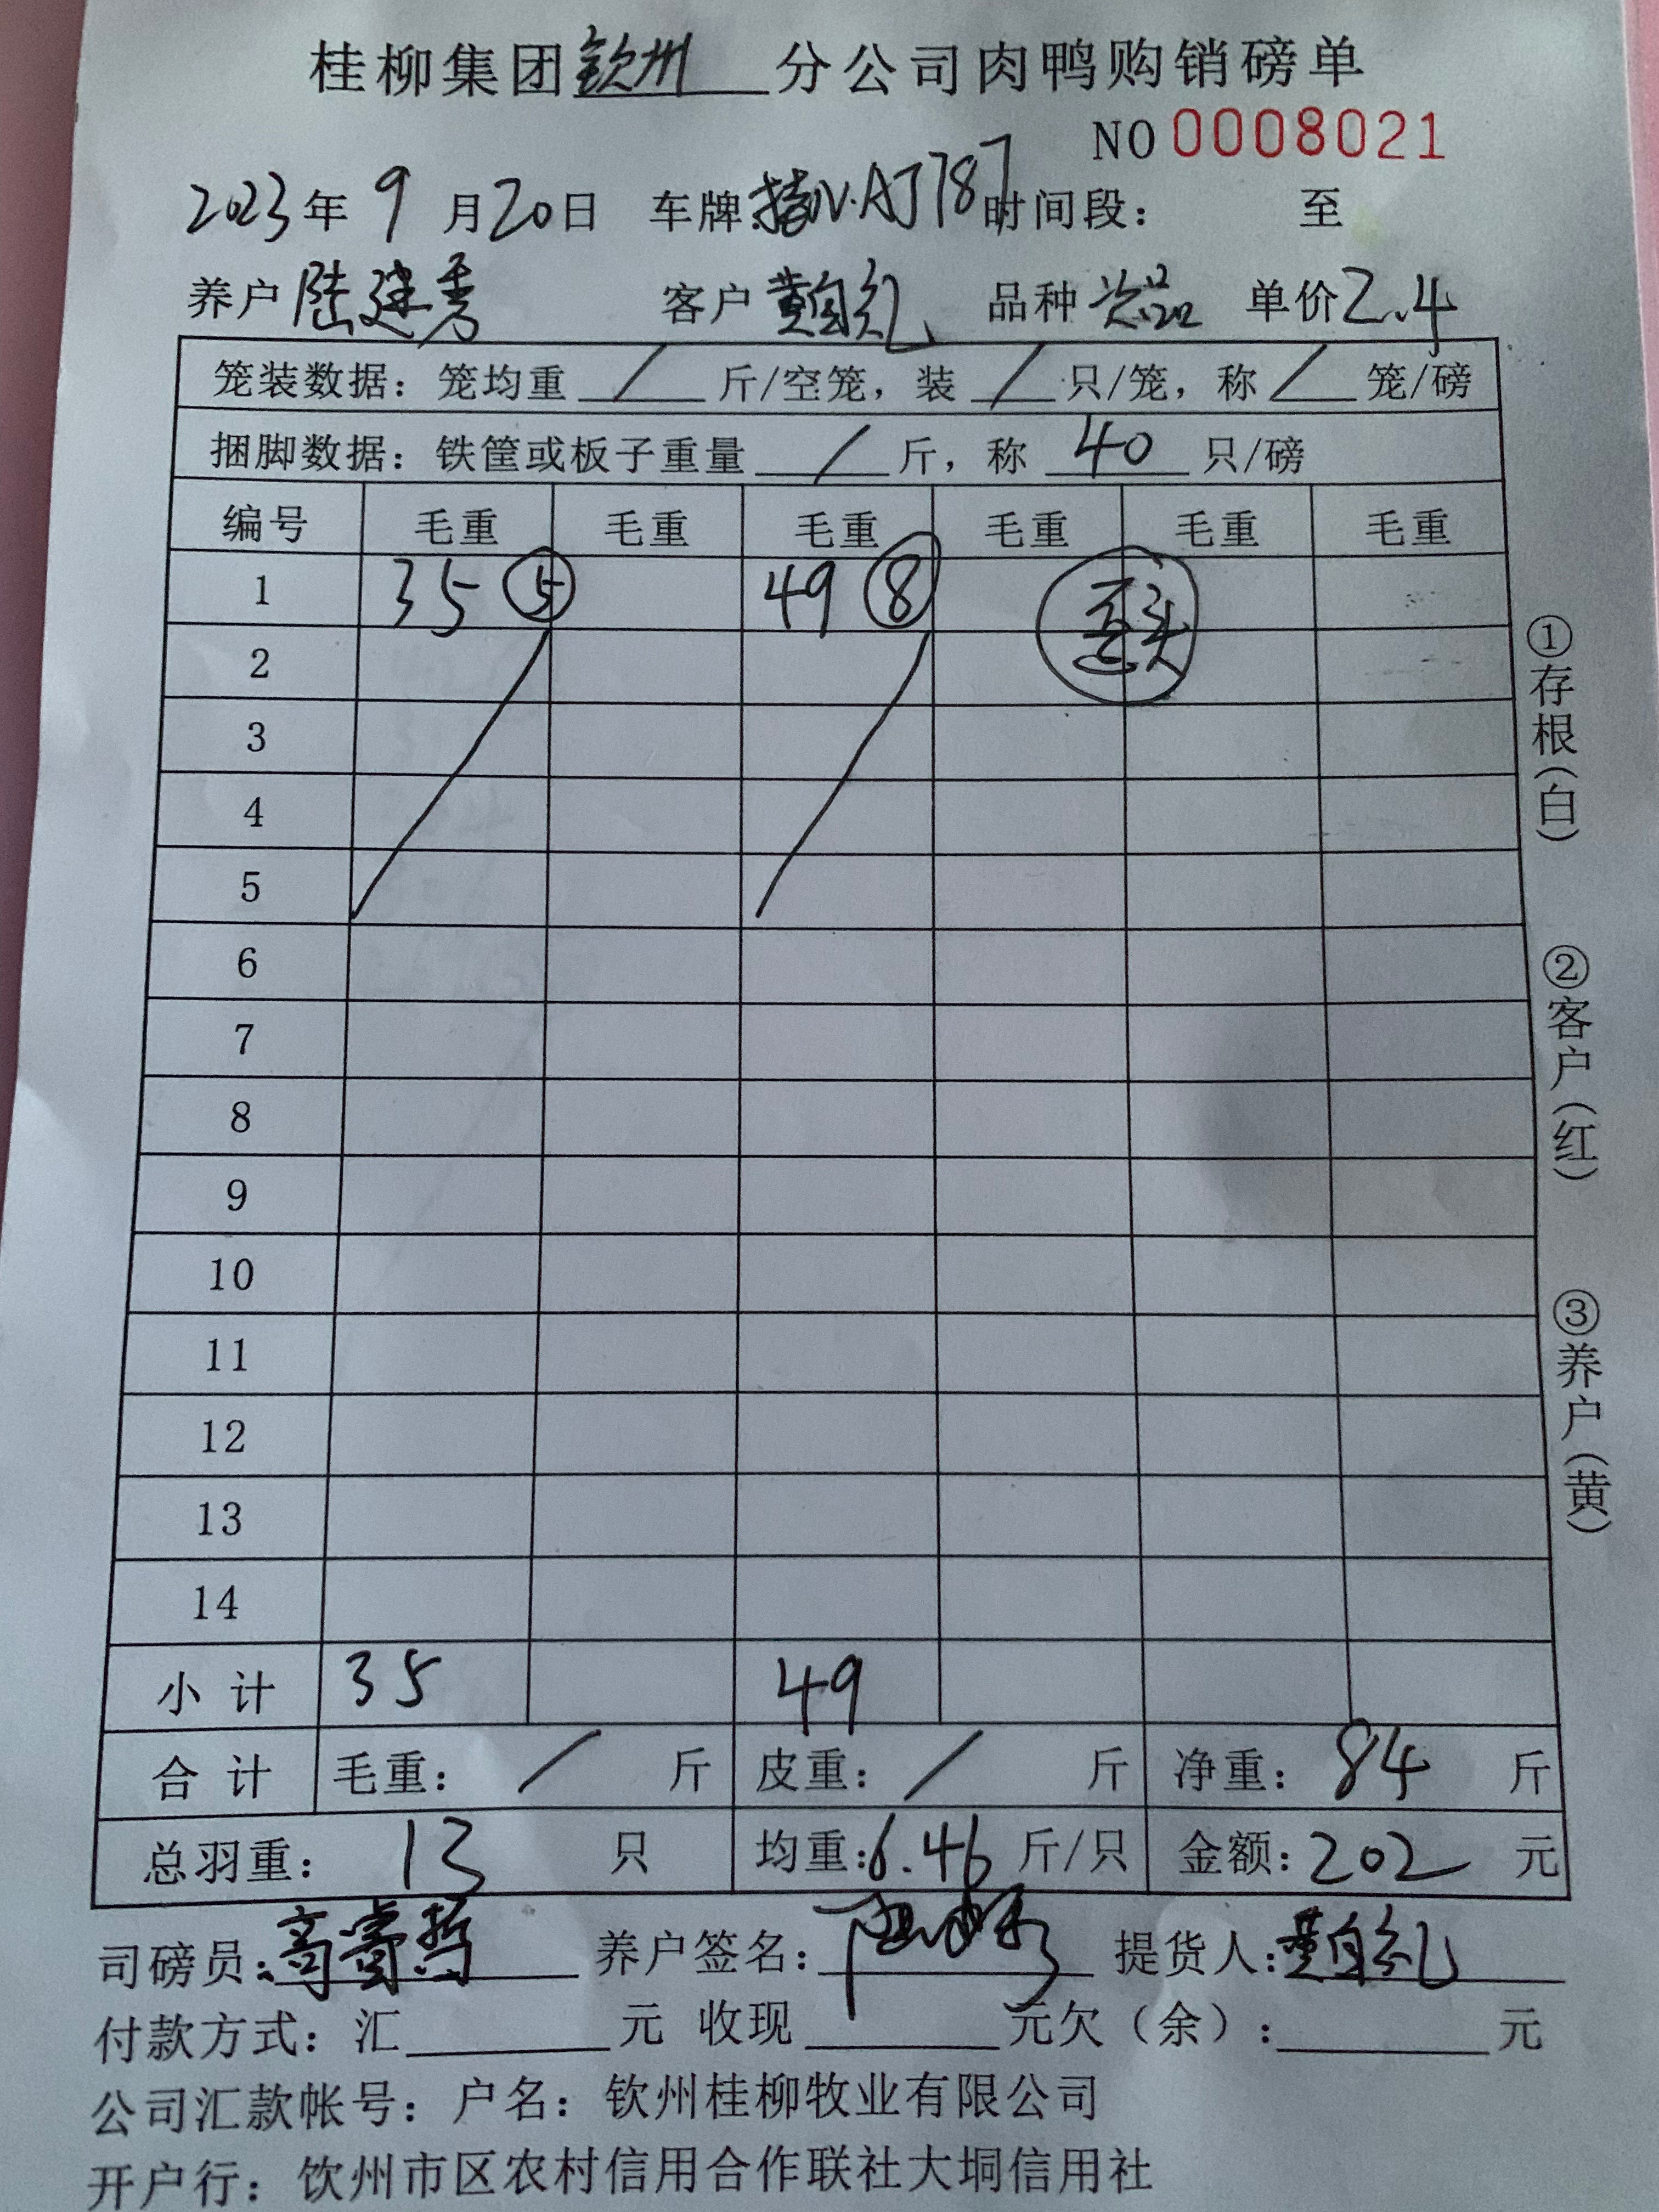 桂柳集团钦州分公司肉鸭购销磅单
NO 0008021
2023年9月20日 车牌:桂N·AJ787 时间段: 至
养户 陆建秀 客户 黄自礼 品种 次品 单价 2.4
笼装数据:笼均重 / 斤/空笼,装 / 只/笼,称 / 笼/磅
捆脚数据:铁筐或板子重量 / 斤,称 40 只/磅
编号 毛重 毛重 毛重 毛重 毛重 毛重
1 35 ⑤ 49 ⑧
2
3
4
5
6
7
8
9
10
11
12
13
14
小计 35 49
合计 毛重: / 斤 皮重: / 斤 净重: 84 斤
总羽重: 13 只 均重: 6.46 斤/只 金额: 202 元
司磅员: 高睿哲 养户签名: 提货人: 黄自礼
付款方式:汇 元 收现 元欠(余): 元
公司汇款帐号:户名:钦州桂柳牧业有限公司
开户行:钦州市区农村信用合作联社大垌信用社
①存根(白)
②客户(红)
③养户(黄)